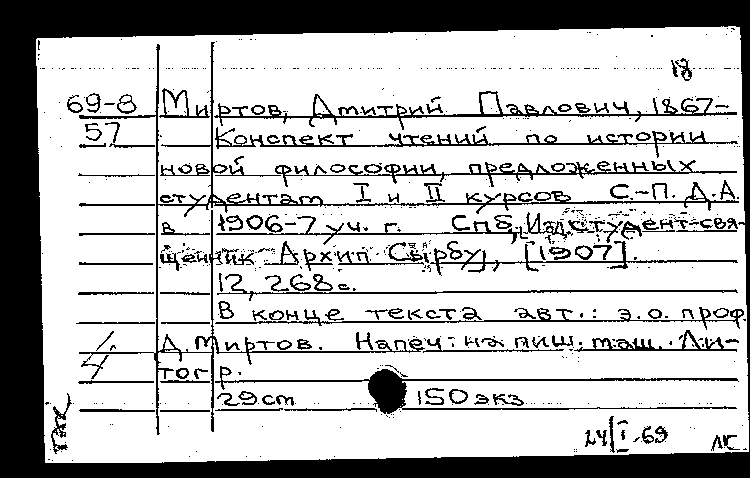 18
69-8 Миртов, Дмитрий Павлович, 1867-
57 Конспект чтений по истории
новой философии, предложенных
студентам I и II курсов С.-П. Д.А.
в 1906-7 уч. г. Спб, Изд. студент-свя-
щенник Архип Сырбу, [1907].
12, 268 с.
В конце текста авт.: э.о. проф.
Д. Миртов. Напеч. на пиш. маш. Ли-
тогр.
29 см 150 экз
24/I-69